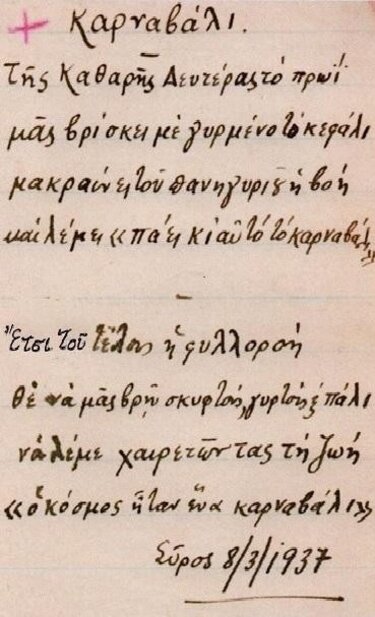 Καρναβάλι.
Τῆς Καθαρῆς Δευτέρας τό πρωί
μᾶς βρίσκει μέ γυρμένο τό κεφάλι
μακραίνει τοῦ πανηγυριοῦ ἡ βοή
καί λέμε «πάει κι αὐτό τό καρναβάλι»
Ἔτσι τοῦ τέλους ἡ φυλλοροή
θέ νά μᾶς βρῆ σκυφτούς, γυρτούς πάλι
νά λέμε χαιρετῶντας τή ζωή
«ὁ κόσμος ἦταν ἕνα καρναβάλι»
Σῦρος 8/3/1937